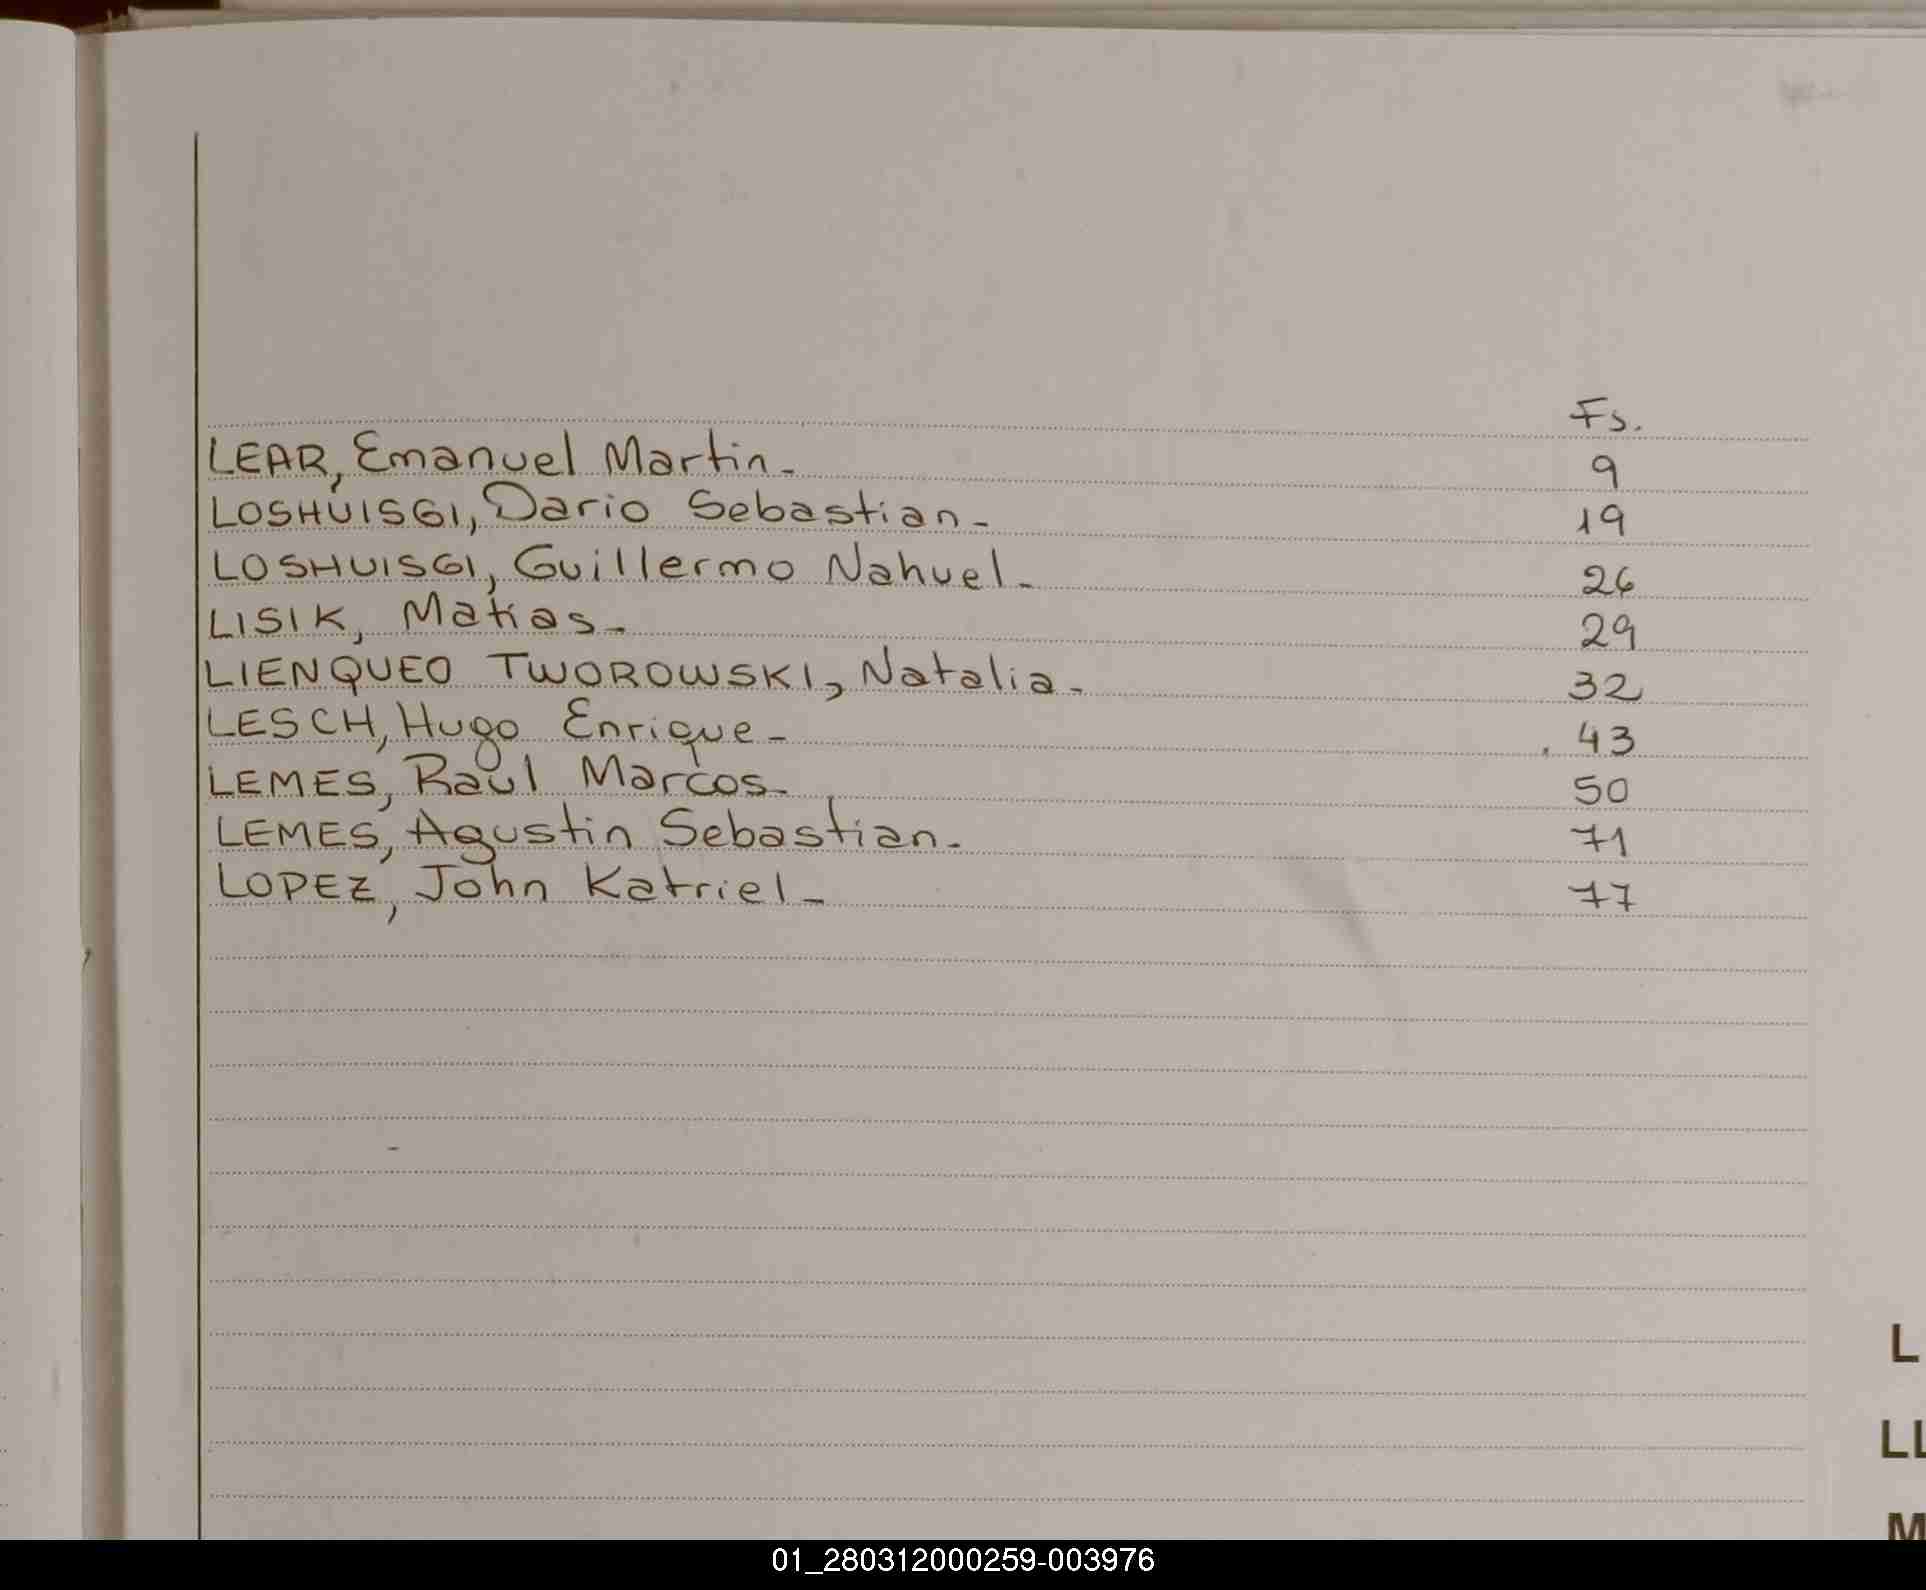 Fs.
LEAR, Emanuel Martin- 9
LOSHUISGI, Dario Sebastian- 19
LOSHUISGI, Guillermo Nahuel- 26
LISIK, Matias- 29
LIENQUEO TWOROWSKI, Natalia- 32
LESCH, Hugo Enrique- 43
LEMES, Raúl Marcos- 50
LEMES, Agustin Sebastian- 71
LOPEZ, John Katriel- 77
L
LL
M
01_280312000259-003976